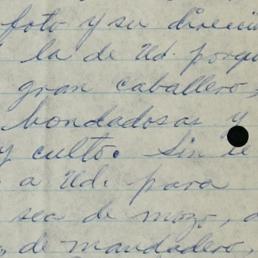 foto y su direcci
la de Ud. porqu
gran caballero,
bondadosas y
y culto. Sin se
a Ud. para
sea de mozo, o
de mandadero,